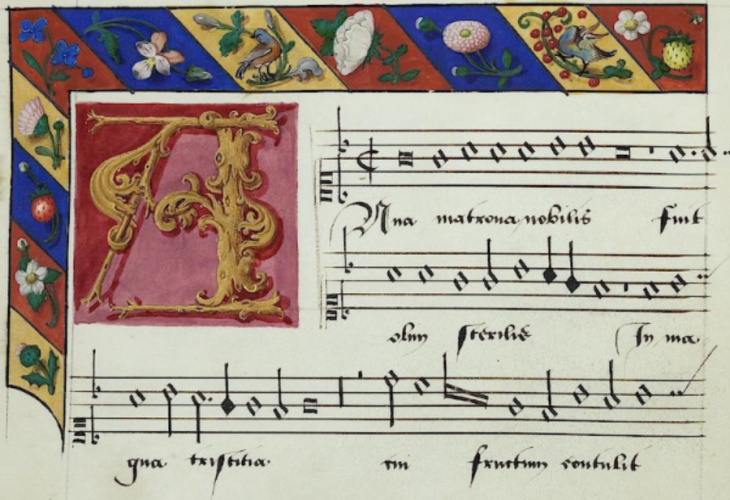 A
Anna matrona nobilis fuit
olim sterilis In ma
gna tristitia cui fructum contulit